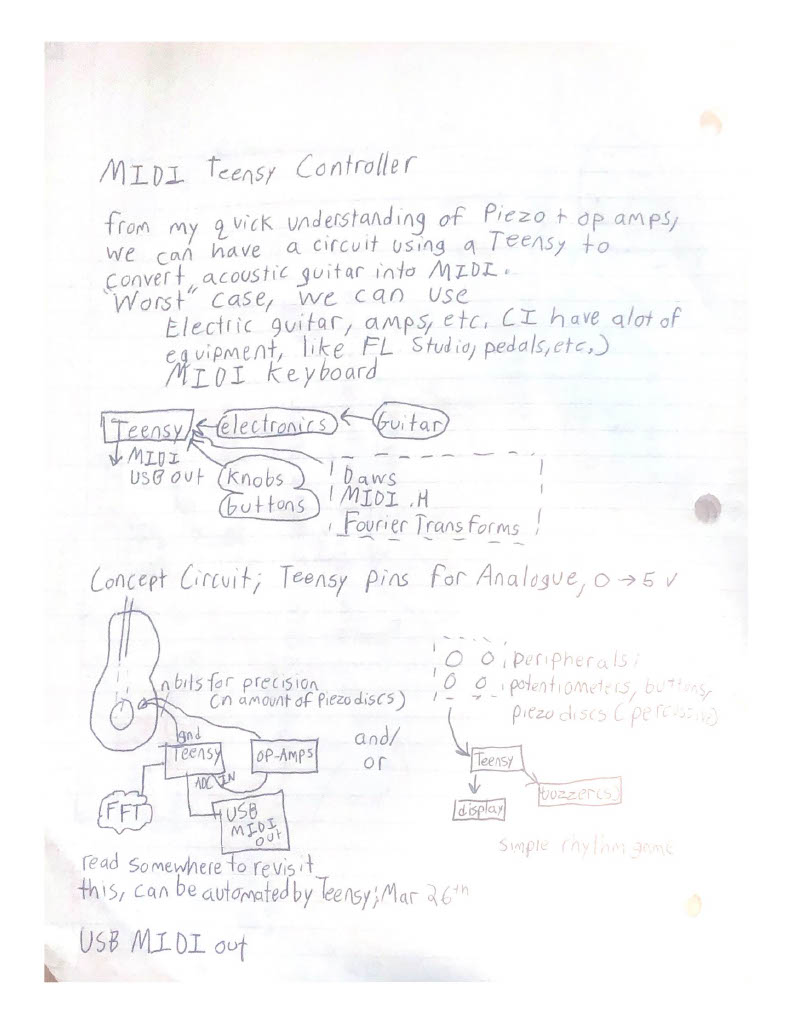 MIDI Teensy Controller
from my quick understanding of Piezo + op amps,
we can have a circuit using a Teensy to
convert acoustic guitar into MIDI.
"Worst" case, we can use
Electric guitar, amps, etc. (I have alot of
equipment, like FL Studio, pedals, etc.)
MIDI Keyboard
Teensy
electronics
Guitar
MIDI
USB out
Knobs
buttons
Daws
MIDI.H
Fourier Transforms
Concept Circuit; Teensy pins for Analogue, 0 → 5 v
n bits for precision
(n amount of Piezo discs)
gnd
Teensy
OP-AMPS
ADC IN
FFT
USB
MIDI
OUT
and/
or
peripherals:
potentiometers, buttons,
piezo discs (percussive)
Teensy
display
buzzer(s)
simple rhythm game
read somewhere to revisit
this, can be automated by Teensy; Mar 26th
USB MIDI out